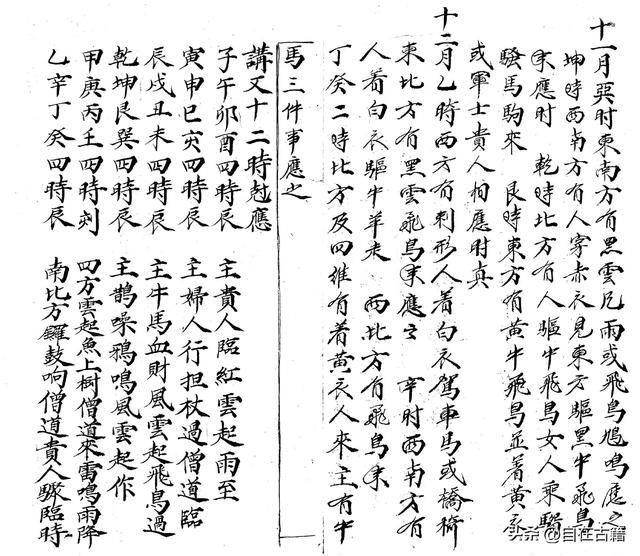 十一月巽时東南方有黑雲凡雨或飛鳥鳴應之
坤時西南方有人穿赤衣見東方驅黑牛飛鳥
來應时 乾時北方有人驅牛飛鳥女人乘驢
騷馬駒來 艮時東方有黄牛飛鳥並着黄衣
或軍士貴人相應时真
十二月乙時西方有刑形人着白衣駕車馬或橋
東北方有黑雲飛鳥來應之 辛时西南方有
人着白衣驅牛羊走 西北方有飛鳥來
丁癸二時北方及四維有着黄衣人來主有牛
馬三件事應之
講又十二時尅應
子午卯酉四時辰 主貴人臨紅雲起雨至
寅申巳亥四時辰 主婦人行担杖過僧道臨
辰戌丑未四時辰 主牛馬血財風雲起飛鳥過
乾坤艮巽四時辰 主鵲噪鴉鳴風雲起作
甲庚丙壬四時刻 四方雲起魚上樹僧道來雷鳴雨降
乙辛丁癸四時辰 南北方鑼鼓响僧道貴人驟臨時
头条@自在古籍